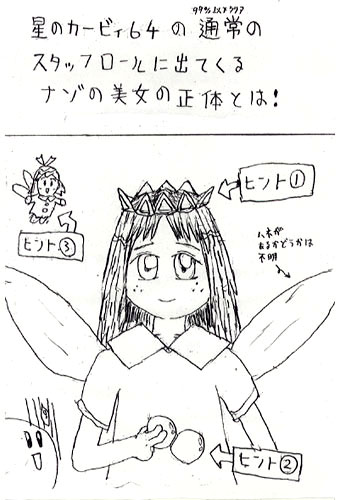 99%以下クリア
星のカービィ64の通常の
スタッフロールに出てくる
ナゾの美女の正体とは!
ヒント①
ヒント③
ハネが
あるかどうかは
不明
ヒント②